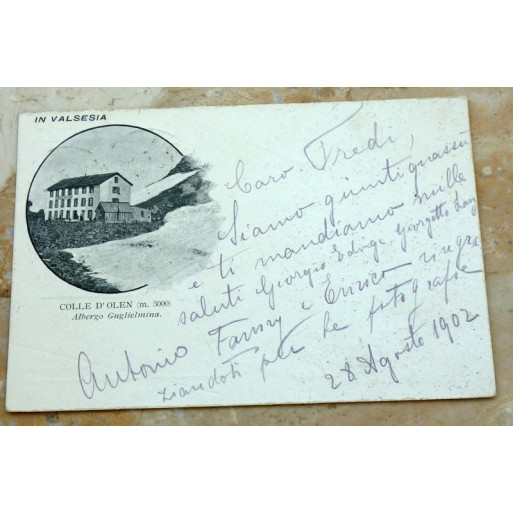 IN VALSESIA
COLLE D'OLEN (m. 3000)
Albergo Guglielmina.
Caro Fredi,
Siamo giunti quassù
e ti mandiamo mille
saluti Giorgio Georgette
Antonio Fanny e Enrico ringra
ziandoti per le fotografie
28 Agosto 1902